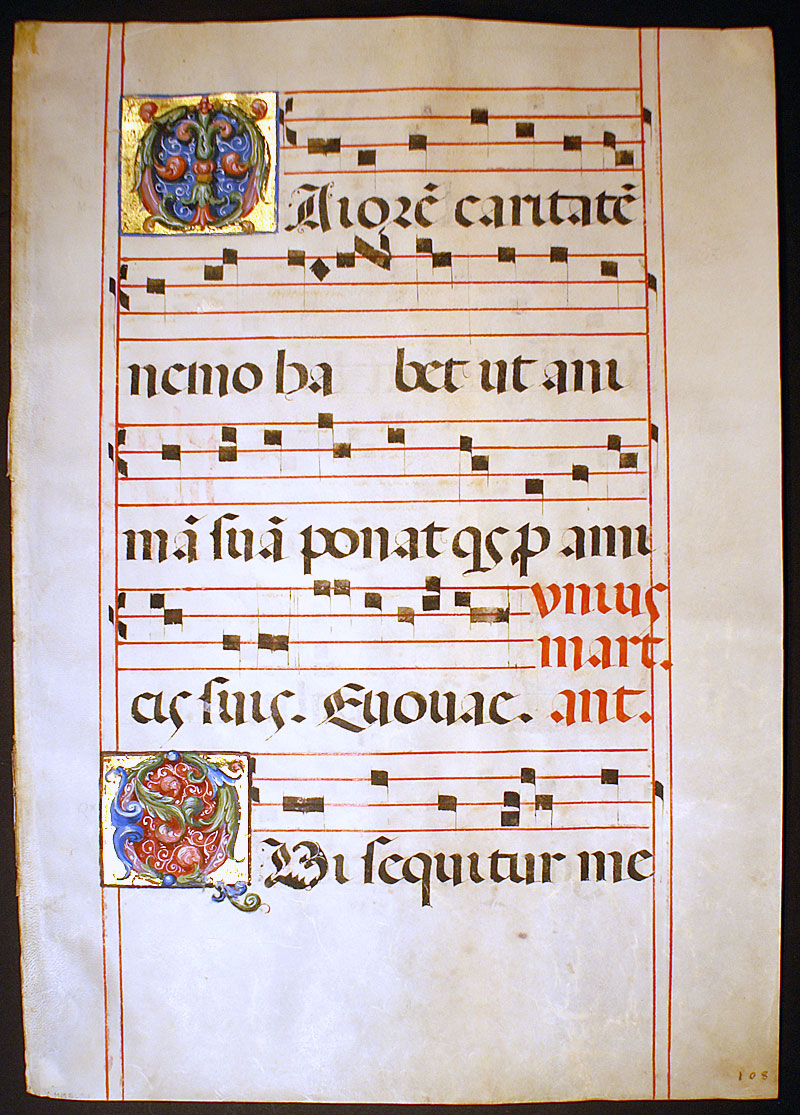 MAiorē caritatē
nemo ha bet ut ani
mā suā ponat qs p ami
cis suis. Euouae. vnius mart. ant.
QVi sequitur me
108